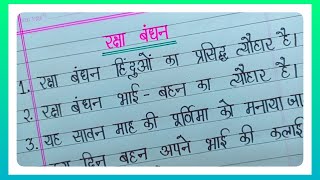 रक्षा बंधन
1. रक्षा बंधन हिंदुओं का प्रसिद्ध त्यौहार है।
2. रक्षा बंधन भाई - बहन का त्यौहार है।
3. यह सावन माह की पूर्णिमा को मनाया जा
दिन बहन अपने भाई की कलाई